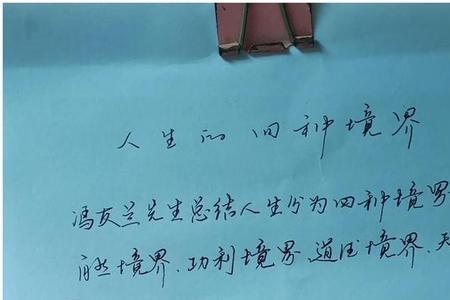 人生的四种境界
冯友兰先生总结人生分为四种境界
然境界、功利境界、道德境界、天